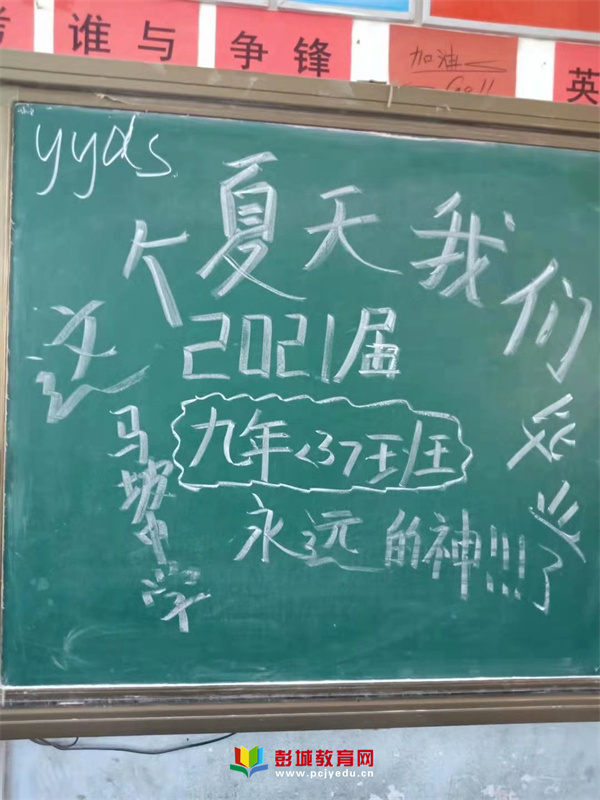 谁与争锋
加油
Go!!
英
yyds
这个夏天我们毕业了
2021届
九年<3>班
马坡中学
永远的神!!!
彭城教育网
www.pcjyedu.cn